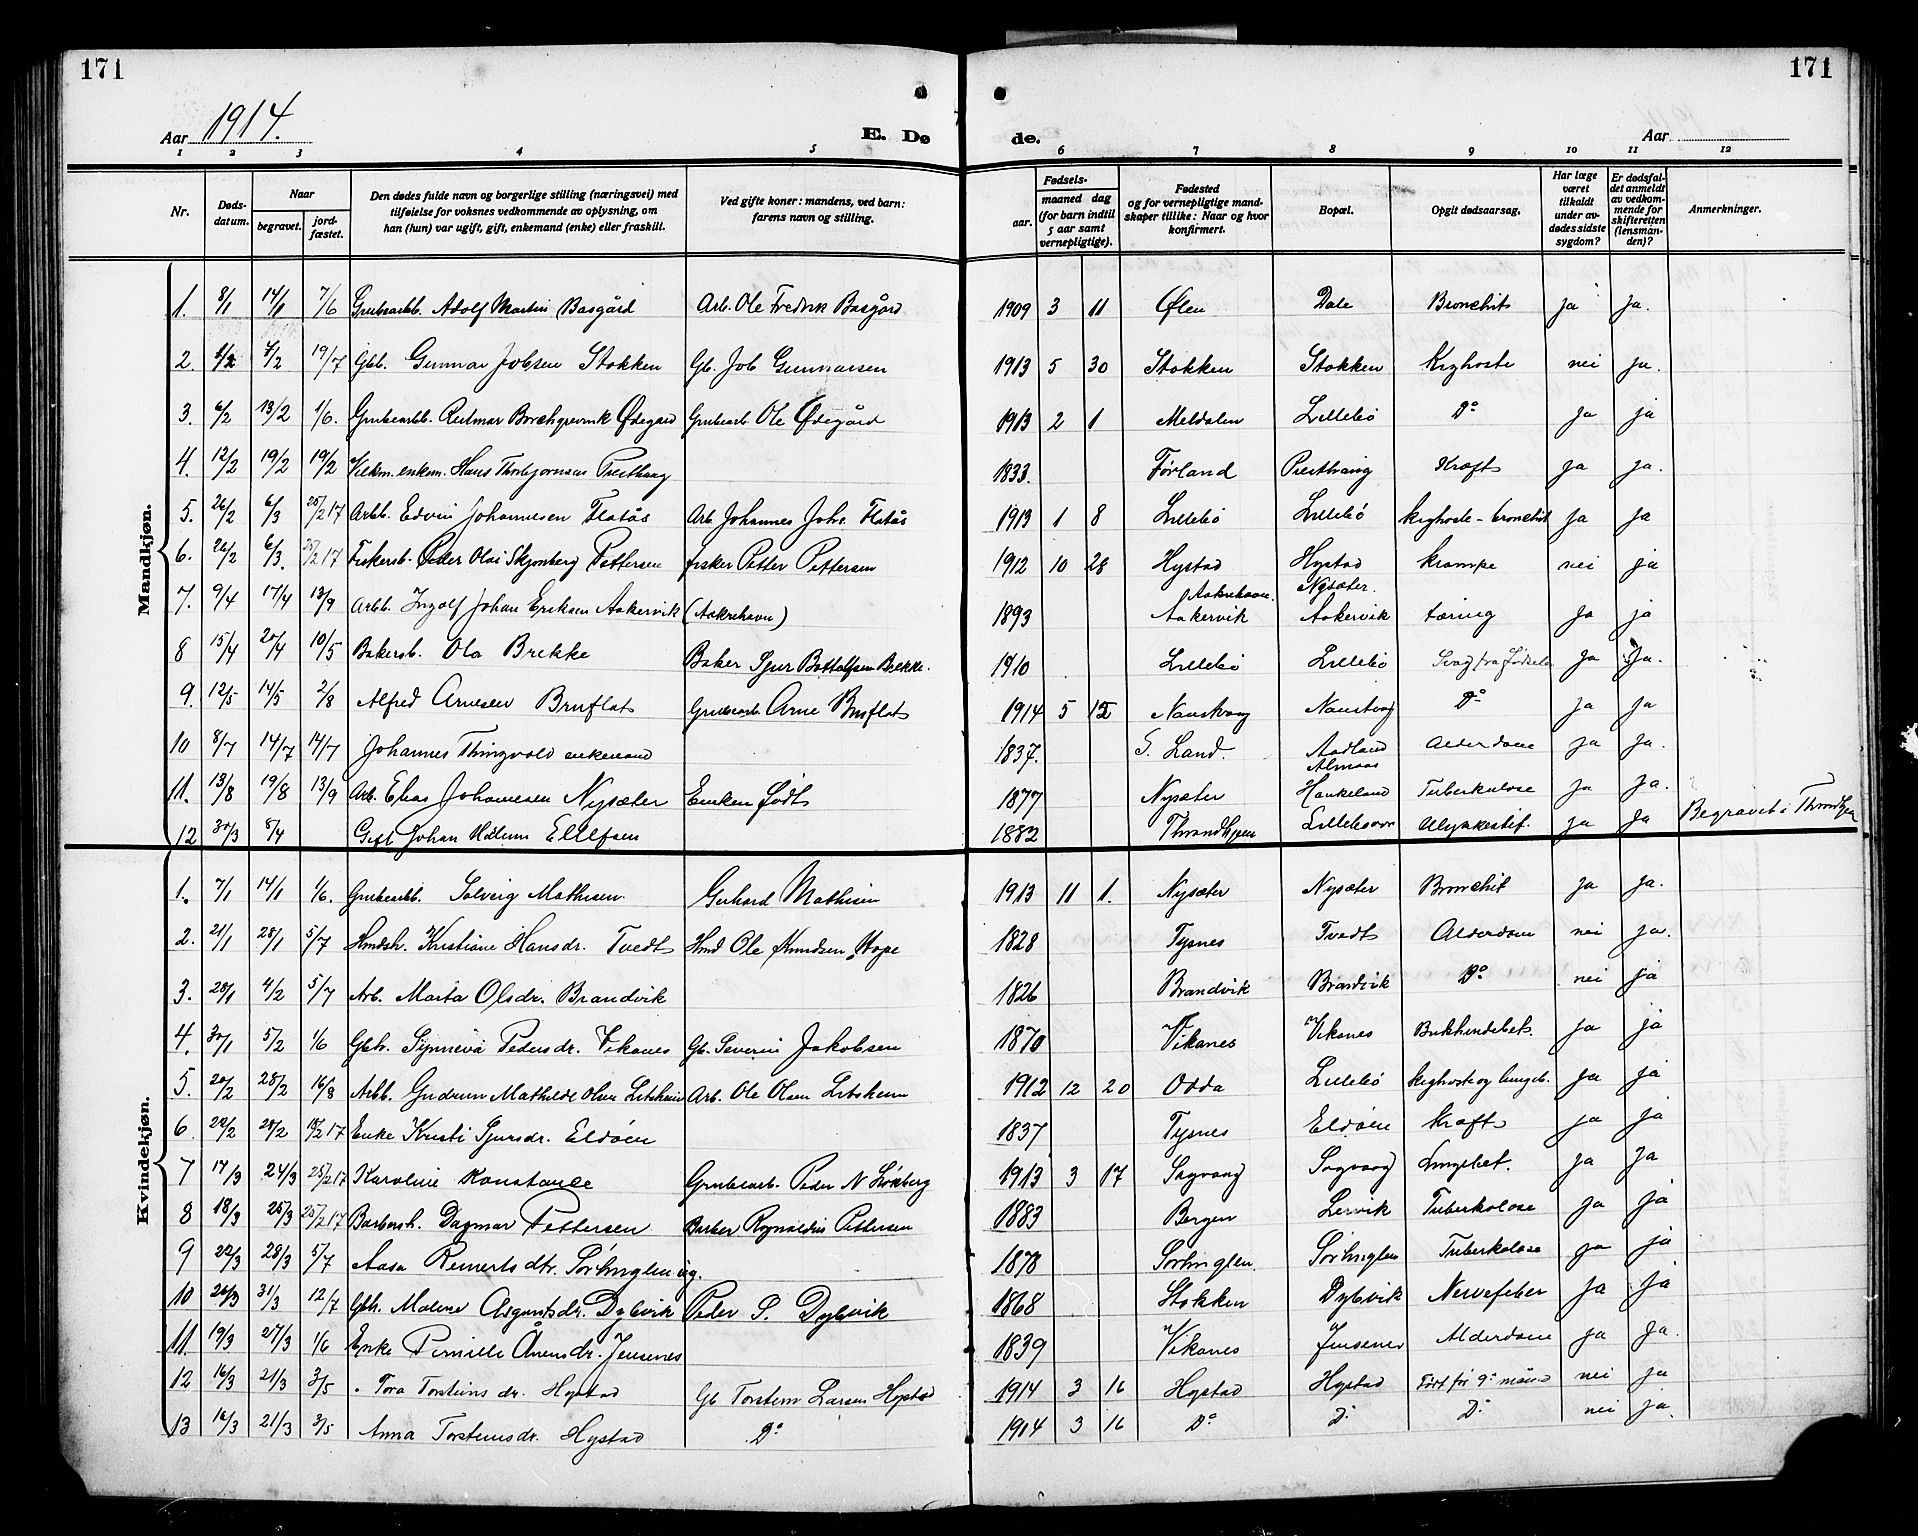 171
171
Aar 1914.
E. Dø
de.
Aar
1 2 3 4 5 6 7 8 9 10 11 12
Nr.
Døds-
datum.
Naar
begravet.
jord-
fæstet.
Den dødes fulde navn og borgerlige stilling (næringsvei) med
tilføielse for voksnes vedkommende av oplysning, om
han (hun) var ugift, gift, enkemand (enke) eller fraskilt.
Ved gifte koner: mandens, ved barn:
farens navn og stilling.
Fødsels-
aar.
maaned dag
(for barn indtil
5 aar samt
vernepligtige).
Fødested
og for vernepligtige mand-
skaper tillike: Naar og hvor
konfirmert.
Bopæl.
Opgit dødsaarsag.
Har læge
været
tilkaldt
under av-
dødes sidste
sygdom?
Er dødsfal-
det anmeldt
av vedkom-
mende for
skifteretten
(lensman-
den)?
Anmerkninger.
Mandkjøn.
1. 8/1 14/1 7/6 Grubearbb. Adolf Martin Basgård Arb. Ole Fredrik Basgård 1909 3 11 Ølen Dale Bronchit ja ja.
2. 1/2 4/2 19/7 Gbb. Gunnar Jobsen Stokken Gb. Job Gunnarsen 1913 5 30 Stokken Stokken Kighoste nei ja.
3. 6/2 13/2 1/6. Grubearbb. Reidmar Borchgrevink Ødegård Grubearb. Ole Ødegård 1913 2 1 Meldalen Lillebø Do ja ja
4. 12/2 19/2 19/2 Vitkm. enkem. Hans Thorbjørnsen Presthaug 1833. Førland Presthaug Kræft ja ja.
5. 26/2 6/3 25/2 17 Arbb. Edvin Johannesen Flatås Arb. Johannes Johs. Flatås 1913 1 8 Lillebø Lillebø kighoste-bronchit ja ja
6. 26/2 6/3. 25/2 17 Fiskersb. Peder Olai Skjonberg Pettersen fisker Petter Pettersen 1912 10 28 Hystad Hystad krampe nei ja
7. 9/4 17/4 13/9 Arbb. Ingolf Johan Eriksen Aakervik (Aakrehavn) 1893 Aakrehavn. Aakervik Nysæter. Aakervik tæring ja ja
8 15/4 20/4 10/5 Bakersb. Ola Brekke Baker Sjur Bottolfsen Brekke. 1910 Lillebø Lillebø Svag fra fødselen ja ja.
9. 12/5 14/5 2/8 Alfred Arnesen Bruflat Grubearb. Arne Bruflat 1914 5 12 Naustvaag Naustvag Do ja ja
10 8/7 14/7 14/7 Johannes Thingvold enkemand 1837. S. Land. Aadland Alderdom ja ja.
11. 13/8 19/8 13/9 Arb. Elias Johannesen Nysæter Enken født 1877 Nysæter Almaas Haukeland Tuberkulose ja ja.
12 30/3 8/4 Gift Johan Ellefsen 1882 Throndhjem Lillebø Ulykkestilf. ja ja Begravet i Throndhjem
Kvindekjøn.
1. 7/1 14/1 1/6. Grubearbb. Solveig Mathisen Gerhard Mathisen 1913 11 1. Nysæter Nysæter Bronchit ja ja.
2. 21/1 28/1 5/7 Hmdsh. Kristiane Hansdr. Tvedt Hmd Ole Knudsen Hope 1828 Tysnes Tvedt Alderdom nei ja.
3. 28/1 4/2 5/7 Arb. Marta Olsdr. Brandvik 1826 Brandvik Brandvik Do nei ja
4. 30/1 5/2 1/6 Gbh. Synneva Pedersdr. Vikanes Gb. Severin Jakobsen 1870 Vikanes Vikanes Bukhindebet. ja ja
5. 20/2 28/2 16/8 Arbb. Gudrun Mathilde Olsen Litsheim Arb. Ole Olsen Litsheim 1912 12 20 Odda Lillebø kighost og lungeb. ja ja
6. 22/2 28/2 18/2 17 Enke Kristi Sjursdr. Eldøen 1837 Tysnes Eldøen kræft ja ja
7 17/3 24/3 25/2 17 Karoline Konstance Grubearb. Peder N Løkberg 1913 3 17 Sagvaag Sagvaag Lungebet. ja ja
8 18/3 25/3 25/2 17 Barbersh. Dagmar Pettersen Barber Rognaldin Pettersen 1883 Bergen Lervik Tuberkulose ja ja
9 22/3 28/3 5/7 Aasa Reinertsdtr. Sørhuglen ug. 1878 Sørhuglen. Sørhuglen Tuberkulose ja ja
10 26/3 31/3 12/7 Gbh. Malene Asgautsdr. Dybvik Peder S. Dybvik 1868 Stokken Dybvik Nervefeber ja ja
11. 19/3 27/3 1/6 Enke Pernille Ånensdr. Jensenes 1839 Vikanes Jensenes Alderdom ja ja.
12 16/3 21/3 3/5 Tora Torsteinsdr. Hystad Gb Torstein Larsen Hystad 1914 3 16 Hystad Hystad Født før 9de måned nei ja
13 16/3 21/3 3/5 Anna Torsteinsdr. Hystad Do 1914 3 16 Do Do Do nei ja